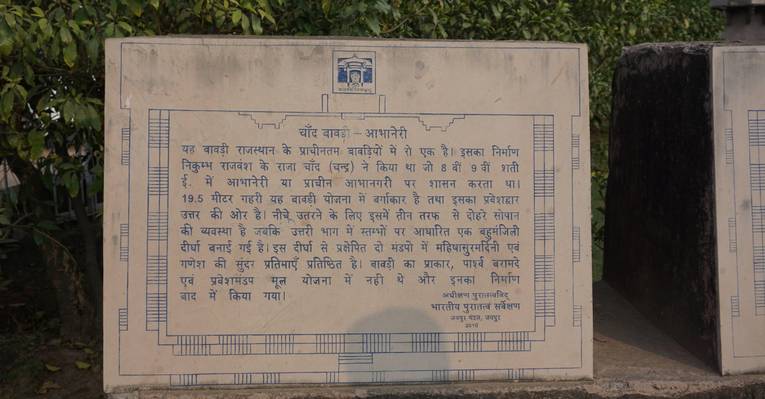 चाँद बावड़ी – आभानेरी
यह बावड़ी राजस्थान के प्राचीनतम बावड़ियों मे रो एक है। इसका निर्माण
निकुम्भ राजवंश के राजा चाँद (चन्द्र) ने किया था जो 8 वीं 9 वीं शती
ई. में आभानेरी या प्राचीन आभानगरी पर शासन करता था।
19.5 मीटर गहरी यह बावड़ी योजना में वर्गाकार है तथा इसका प्रवेशद्वार
उत्तर की ओर है। नीचे उतरने के लिए इसमें तीन तरफ से दोहरे सोपान
की व्यवस्था है जबकि उत्तरी भाग में स्तम्भों पर आधारित एक बहुमंजिली
दीर्घा बनाई गई है। इस दीर्घा से प्रक्षेपित दो मंडपो में महिषासुरमर्दिनी एवं
गणेश की सुंदर प्रतिमाएँ प्रतिष्ठित है। बावड़ी का प्राकार, पार्श्व बरामदे
एवं प्रवेशमंडप मूल योजना में नही थे और इनका निर्माण
बाद में किया गया।
अधीक्षण पुरातत्वविद्
भारतीय पुरातत्व सर्वेक्षण
जयपुर मंडल, जयपुर